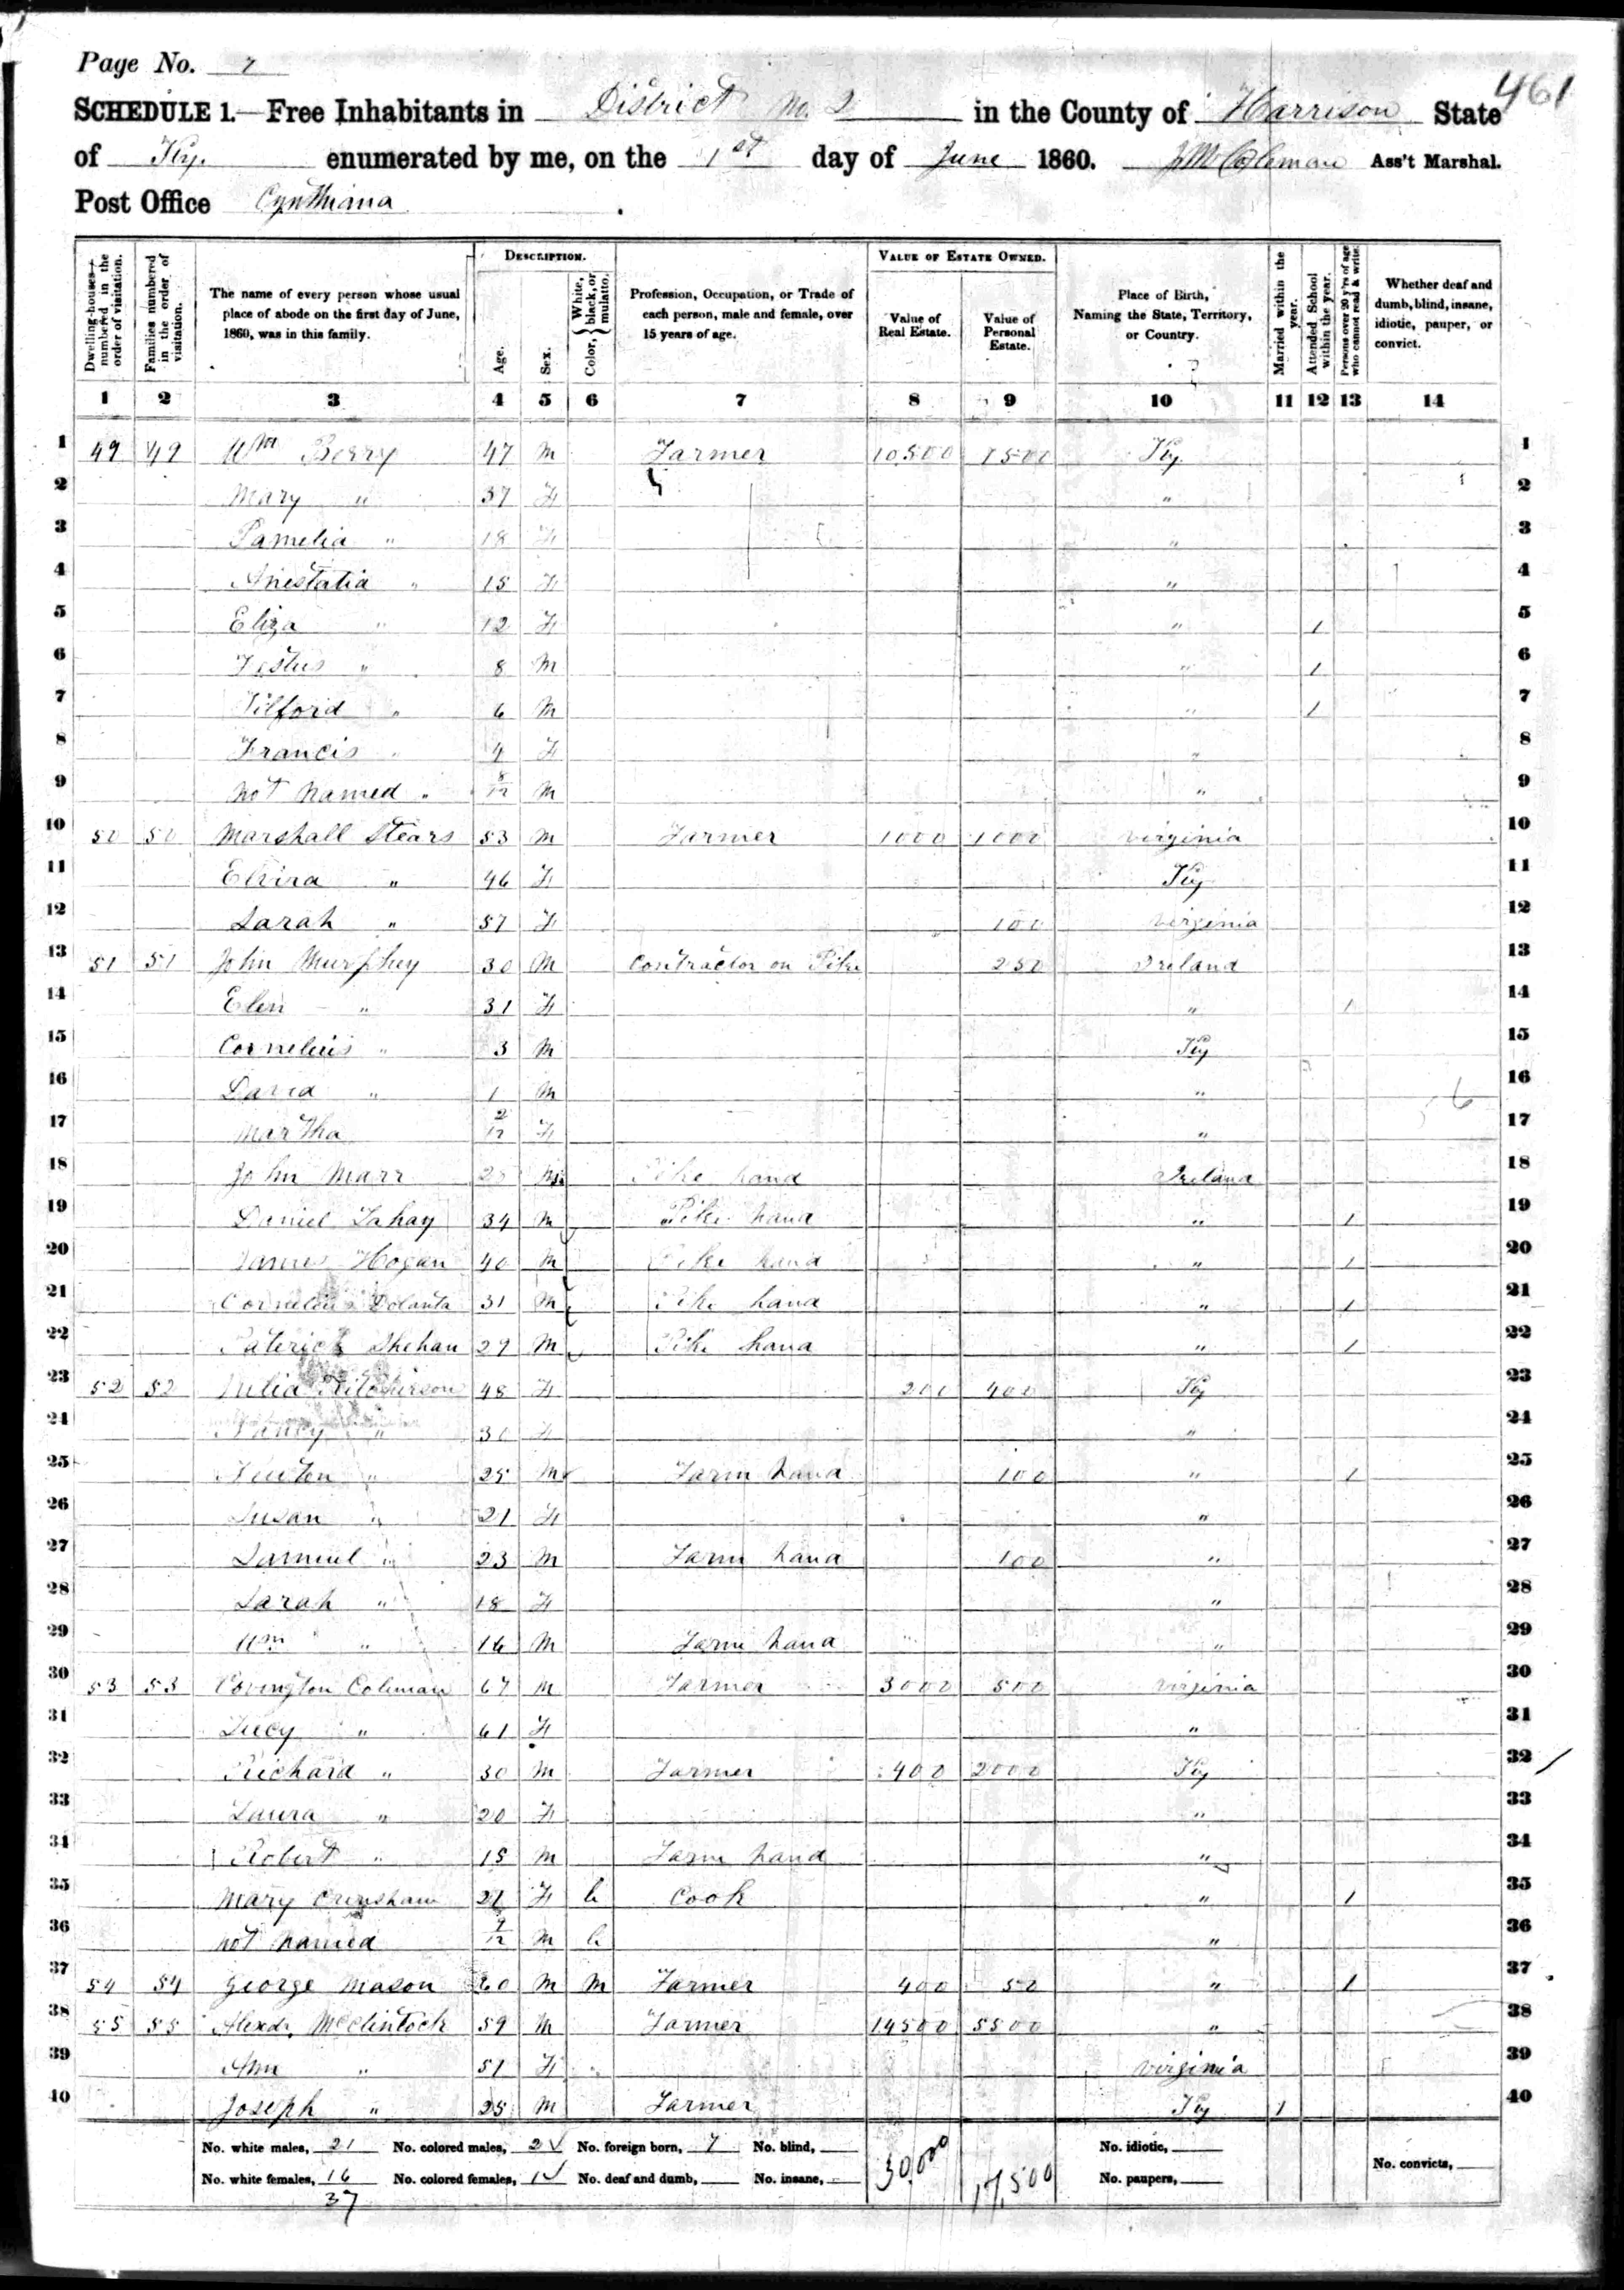 Page No. 7
461
SCHEDULE 1.—Free Inhabitants in District No. 2 in the County of Harrison State
of Ky. enumerated by me, on the 1st day of June 1860. J M Coleman Ass't Marshal.
Post Office Cynthiana
Dwelling-houses numbered in the order of visitation.
Families numbered in the order of visitation.
The name of every person whose usual place of abode on the first day of June, 1860, was in this family.
DESCRIPTION.
Age.
Sex.
Color, { White, black, or mulatto.
Profession, Occupation, or Trade of each person, male and female, over 15 years of age.
VALUE OF ESTATE OWNED.
Value of Real Estate.
Value of Personal Estate.
Place of Birth, Naming the State, Territory, or Country.
Married within the year.
Attended School within the year.
Persons over 20 y'rs of age who cannot read & write.
Whether deaf and dumb, blind, insane, idiotic, pauper, or convict.
1 2 3 4 5 6 7 8 9 10 11 12 13 14
1 49 49 Wm Berry 47 M Farmer 10500 Ky. 1
2 Mary " 37 F " 2
3 Pamelia " 18 F " 3
4 Anestatia " 15 F " 4
5 Eliza " 12 F " 1 5
6 Festus " 8 M " 1 6
7 Tilford " 6 M " 1 7
8 Francis " 4 F " 8
9 not named " 8/12 M " 9
10 50 50 Marshall Stears 53 M Farmer 1000 1000 Virginia 10
11 Elvira " 46 F Ky 11
12 Sarah " 57 F 100 Virginia 12
13 51 51 John Murphey 30 M Contractor on Pike 250 Ireland 13
14 Elen " 31 F " 1 14
15 Cornelius " 3 M Ky 15
16 David " 1 M " 16
17 Martha 2/12 F " 17
18 John Marr M Pike hand Ireland 18
19 Daniel Lahay 34 M Pike hand " 1 19
20 James Hogan 40 M Pike hand " 1 20
21 Cornelius 31 M Pike hand " 1 21
22 Paterick Shehan 29 M Pike hand " 1 22
23 52 52 Julia 48 F 200 400 Ky 23
24 Nancy " F " 24
25 Newton " 25 M Farm hand 100 " 1 25
26 Susan " 21 F " 26
27 Samuel " 23 M Farm hand 100 " 27
28 Sarah " 18 F " 28
29 Wm " 16 M Farm hand " 29
30 53 53 Covington Coleman 67 M Farmer 3000 500 Virginia 30
31 Lucy " 61 F " 31
32 Richard " 30 M Farmer 400 2000 Ky 32
33 Laura " 20 F " 33
34 Robert " 15 M Farm hand " 34
35 Mary Crenshaw 21 F b Cook " 1 35
36 not named 9/12 M b " 36
37 54 54 George Mason 60 M M Farmer 400 50 " 1 37
38 55 55 Alexdr McClintock 59 M Farmer 14500 5500 " 38
39 Ann " 51 F Virginia 39
40 Joseph " 25 M Farmer Ky 1 40
No. white males, 21 No. colored males, 2 No. foreign born, 7 No. blind, No. idiotic,
No. white females, 16 No. colored females, 1 No. deaf and dumb, No. insane, 30,000 17,500 No. paupers, No. convicts,
37